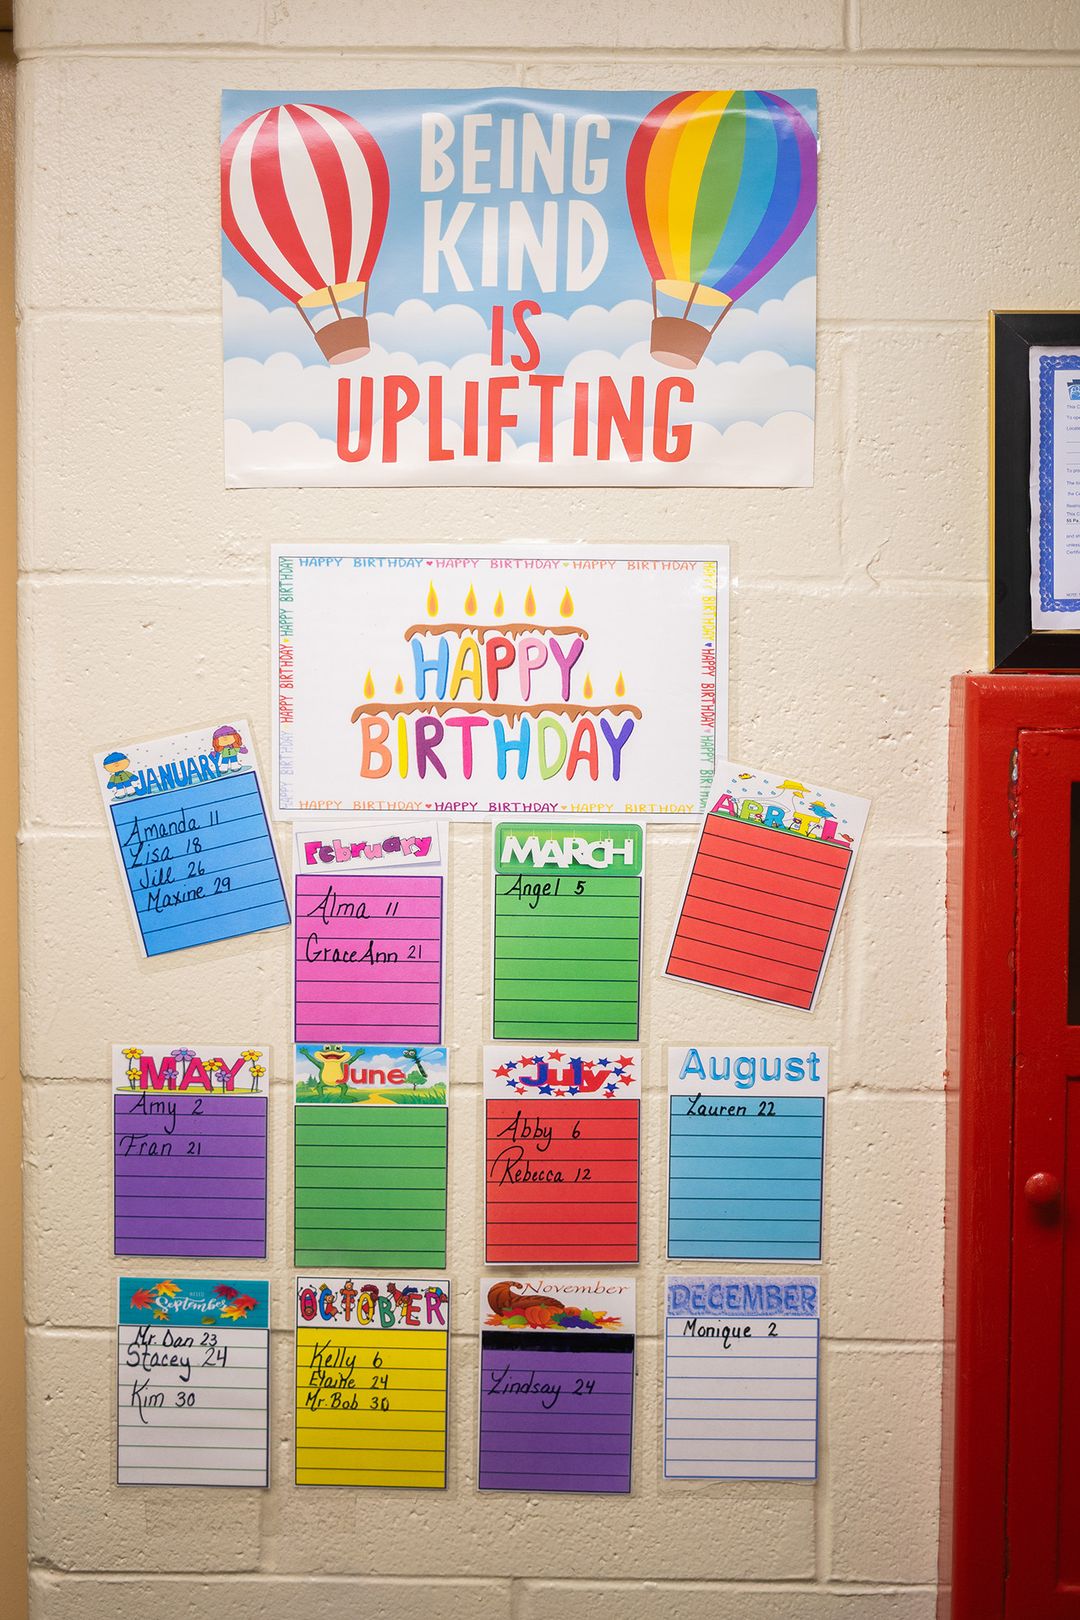 BEING
KIND
IS
UPLIFTING
HAPPY BIRTHDAY HAPPY BIRTHDAY HAPPY BIRTHDAY
HAPPY BIRTHDAY HAPPY BIRTHDAY HAPPY BIRTHDAY
HAPPY
BIRTHDAY
HAPPY BIRTHDAY HAPPY BIRTHDAY
HAPPY BIRTHDAY HAPPY BIRTHDAY HAPPY BIRTHDAY
JANUARY
Amanda 11
Lisa 18
Jill 26
Maxine 29
February
Alma 11
GraceAnn 21
MARCH
Angel 5
APRIL
MAY
Amy 2
Fran 21
June
July
Abby 6
Rebecca 12
August
Lauren 22
September
Mr. Dan 23
Stacey 24
Kim 30
OCTOBER
Kelly 6
Elaine 24
Mr. Bob 30
November
Lindsay 24
DECEMBER
Monique 2
This C